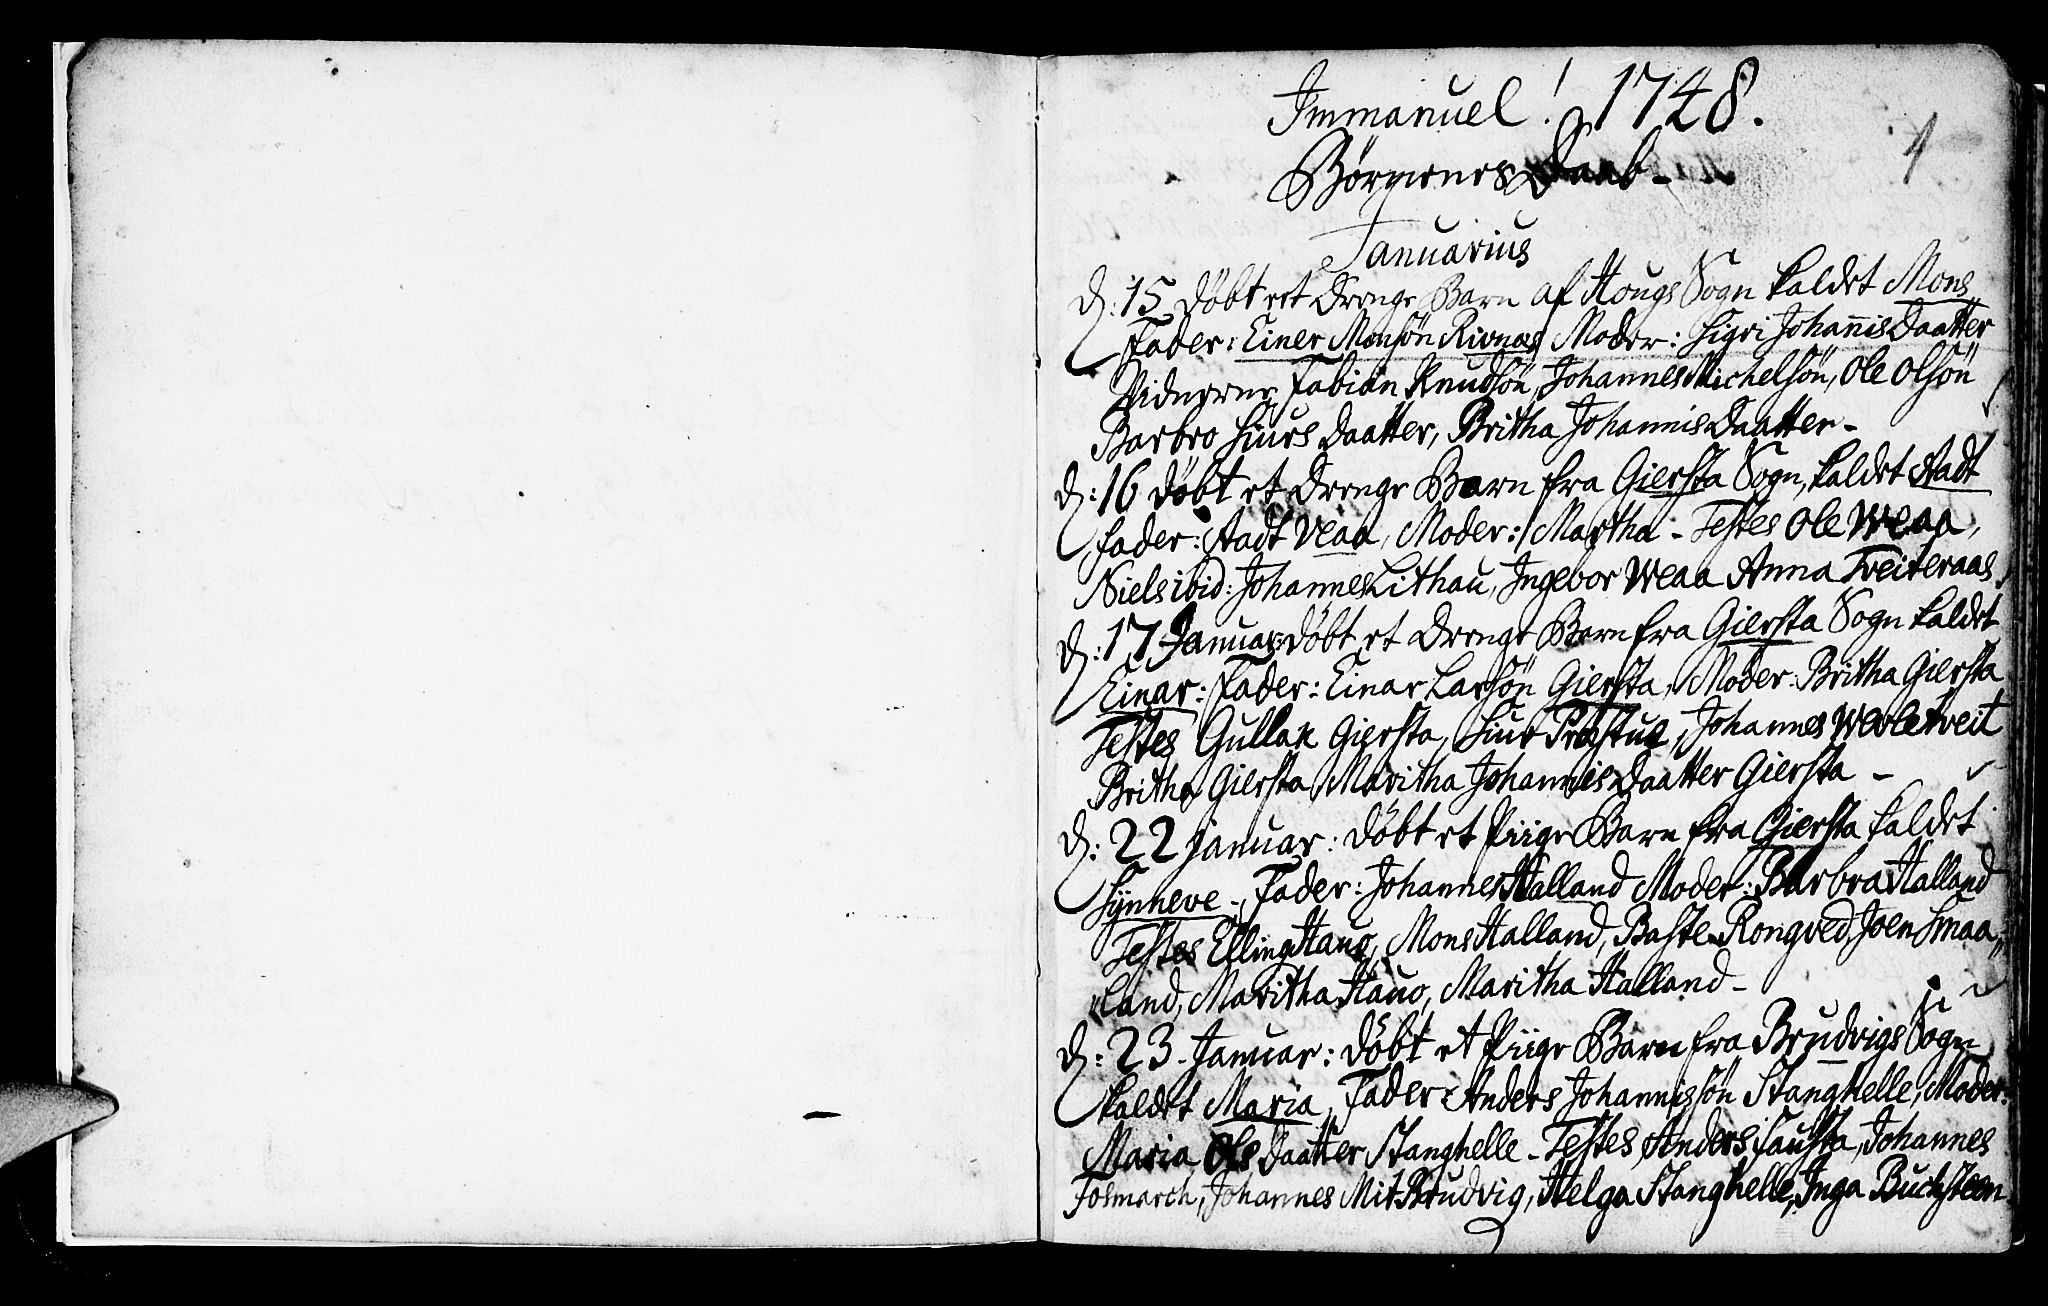 Immanuel! 1748.
1
Börnenes Daab -
Januarius
d: 15 döbt et Drenge Barn af Hougs Sogn kaldet Mons
Fader: Einer Monsön Rivnæs Moder: Sigri Johannis Daatter
Vidnerne Fabian Knudsön, Johannes Michelsön, Ole Olsön
Barbro Siurs Daatter, Britha Johannis Daatter -
d: 16 döbt et Drenge Barn fra Giersta Sogn, kaldet Aadt
Fader: Aadt Veaa, Moder: Martha - Testes Ole Weaa,
Niels ibid: Johannes Lithau, Ingebor Weaa Anna Tveiteraas
d: 17 Januar: döbt et Drenge Barn fra Giersta Sogn kaldet
Einar: Fader: Einar Larsön Giersta, Moder: Britha Giersta
Testes Gullak Giersta, Siur Præstue, Johannes Wevletveit
Britha Giersta Maritha Johannis Daatter Giersta -
d: 22 Januar: döbt et Piige Barn fra Giersta kaldet
Synneve -, Fader: Johannes Halland Moder: Barbra Halland
Testes Elling Haug, Mons Halland, Baste Rongved, Joen Smaa,,
,,land, Maritha Haug, Maritha Halland -
d: 23. Januar: döbt et Piige Barn fra Brudvigs Sogn
kaldet Maria, Fader: Anders Johannissön Stanghelle, Moder:
Maria Ols Daatter Stanghelle - Testes Anders Fausta, Johannes
Tosmarch, Johannes Mit-Brudvig, Helga Stanghelle, Inga Buchsteen